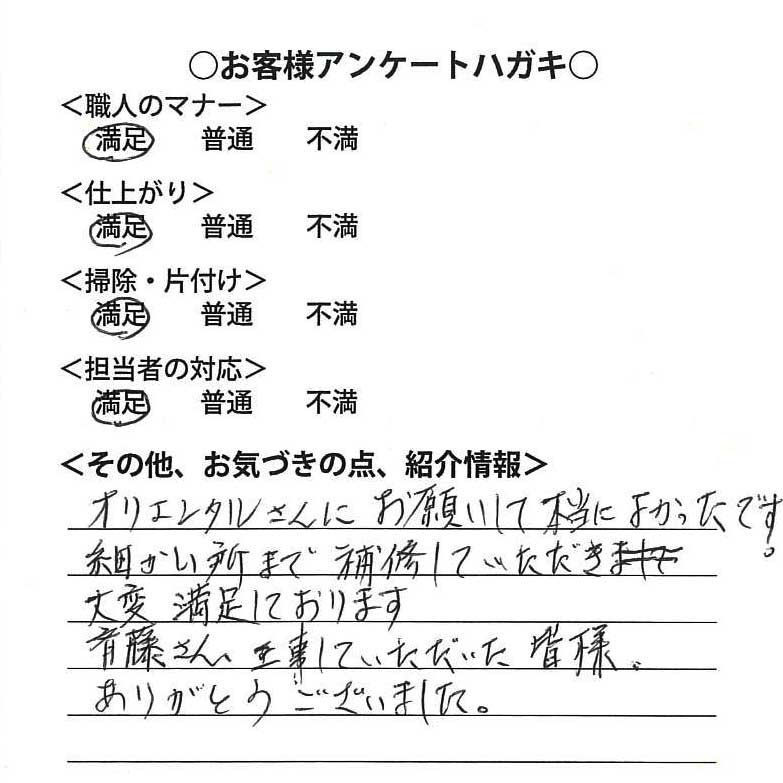 ○お客様アンケートハガキ○
＜職人のマナー＞
満足 普通 不満
＜仕上がり＞
満足 普通 不満
＜掃除・片付け＞
満足 普通 不満
＜担当者の対応＞
満足 普通 不満
＜その他、お気づきの点、紹介情報＞
オリエンタルさんにお願いして本当によかったです。
細かい所まで補修していただき
大変満足しております
斉藤さん、工事していただいた皆様。
ありがとうございました。